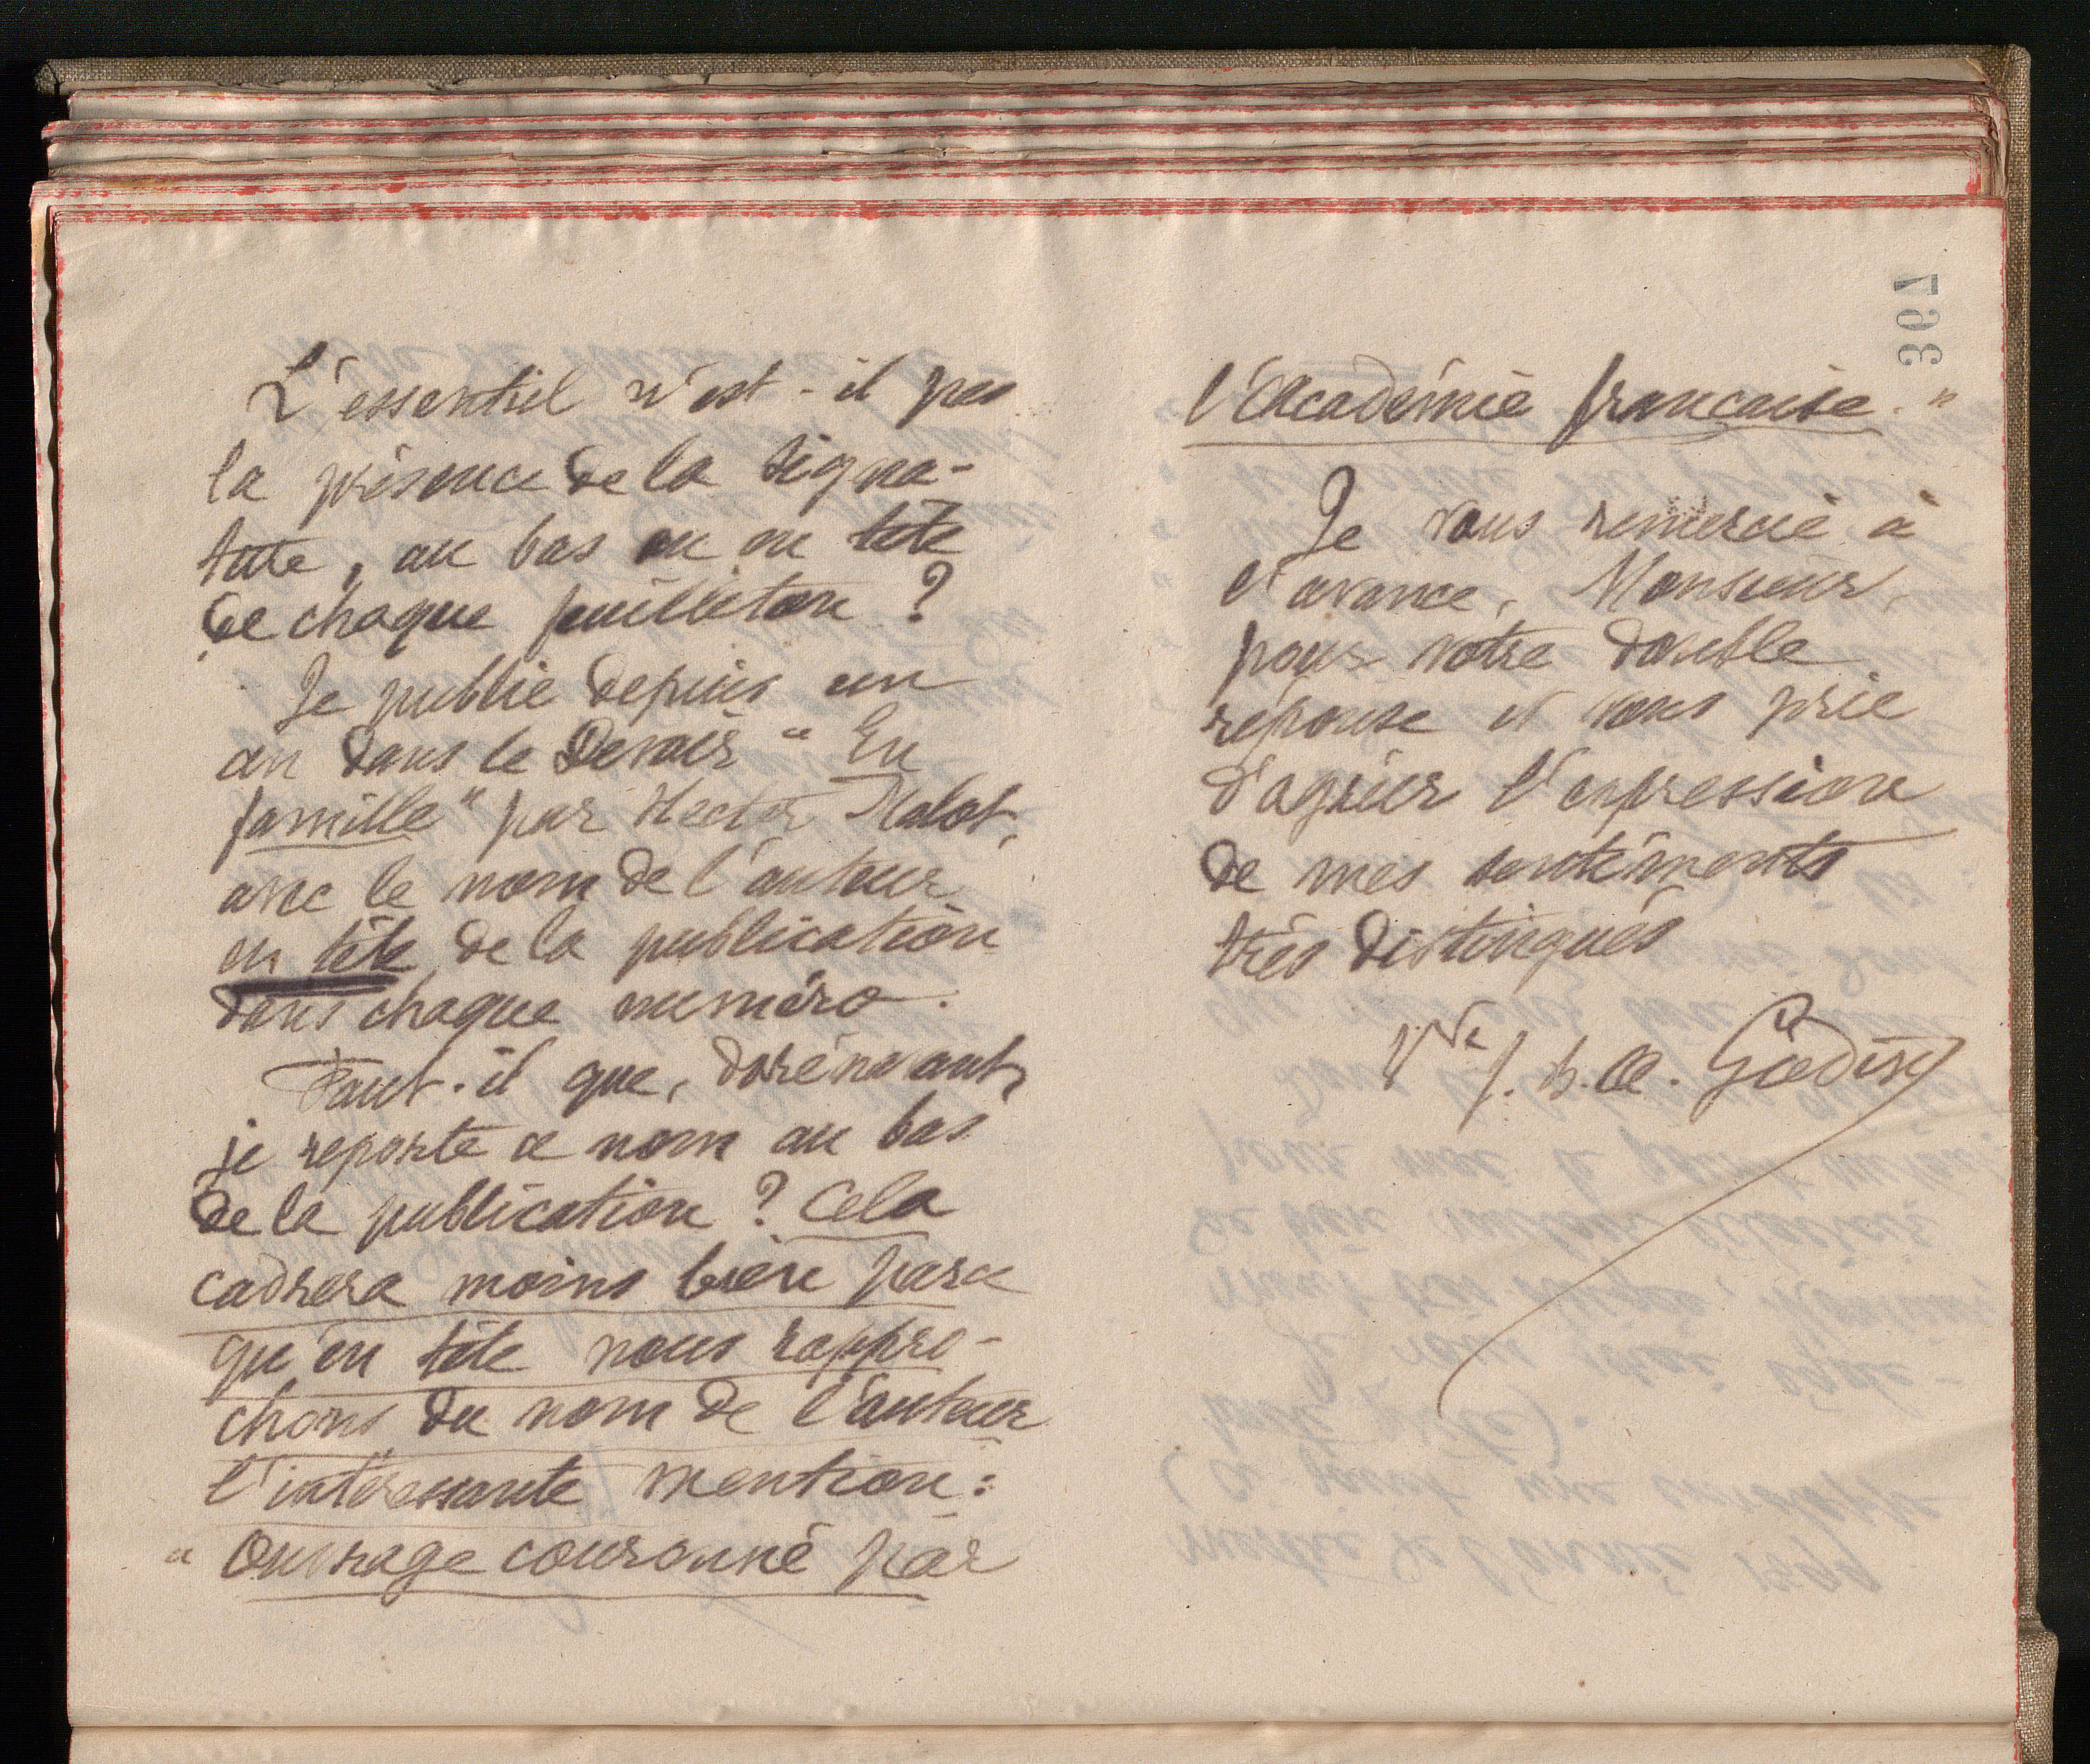 L'essentiel n'est-il pas
la présence de la signa-
ture, au bas ou en tête
de chaque feuilleton ?
Je publie depuis un
an dans le Devoir " En
famille " par Hector Malot,
avec le nom de l'auteur
en tête de la publication
dans chaque numéro.
Faut-il que, dorénavant,
je reporte ce nom au bas
de la publication ? Cela
cadrera moins bien parce
qu'en tête nous rappro-
chons du nom de l'auteur
l'intéressante mention :
" Ouvrage couronné par
367
l'Académie française. "
Je vous remercie à
l'avance, Monsieur,
pour votre double
réponse et vous prie
d'agréer l'expression
de mes sentiments
très distingués
Vve J. B. A. Godin